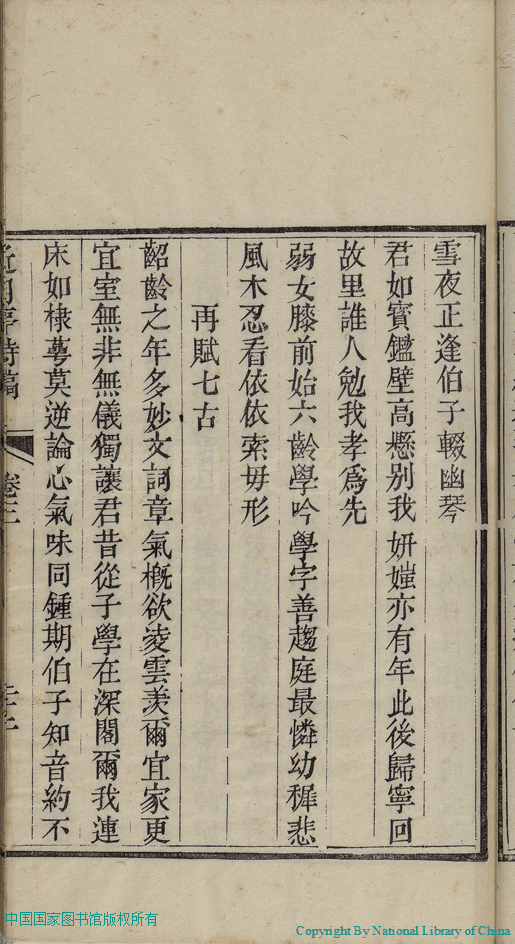 雪夜正逢伯子輟幽琴
君如寳鑑壁高懸别我妍媸亦有年此後歸寧回
故里誰人勉我孝爲先
弱女膝前始六齡學吟學字善趨庭最憐幼稺悲
風木忍看依依索毋形
再賦七古
齠齡之年多妙文詞章氣槪欲凌雲羡爾宜家更
宜室無非無儀獨讓君昔從子學在深閣爾我連
床如棣蕚莫逆論心氣味同鍾期伯子知音約不
詩稿
卷三
中国国家图书馆版权所有
Copyright By National Library of China